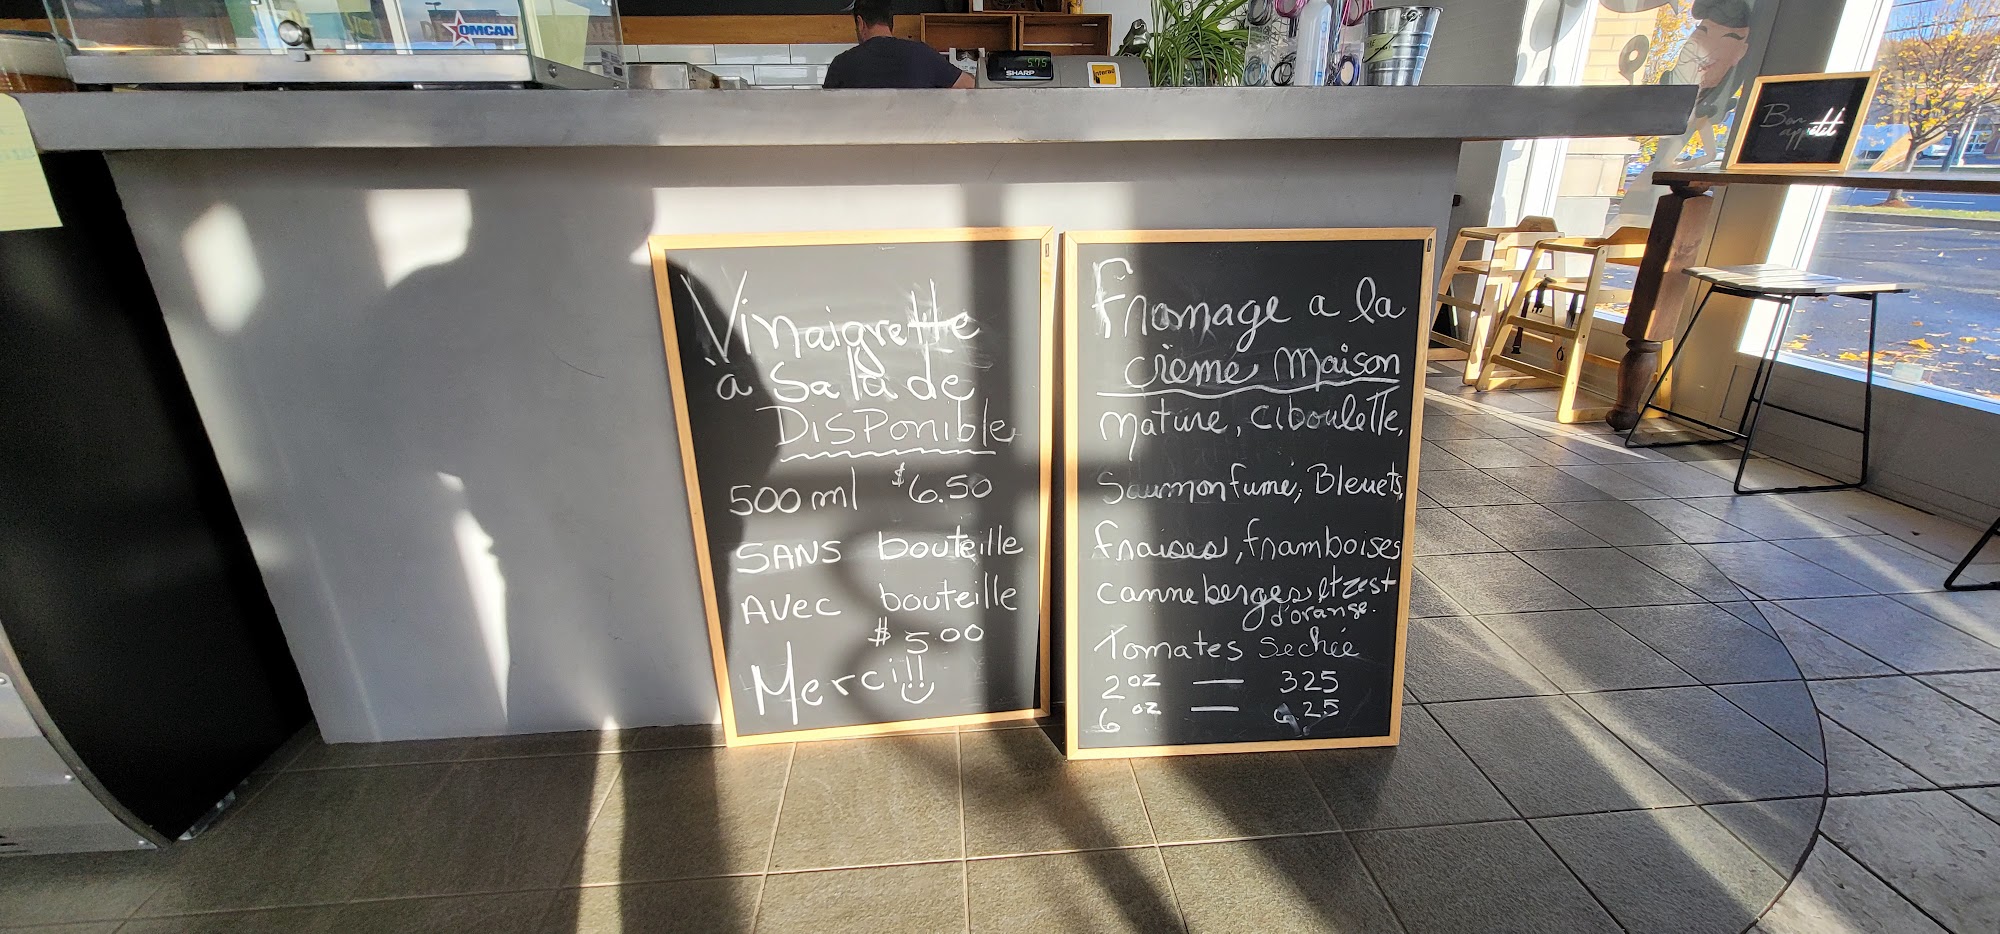 OMCAN
5.75
SHARP
Interac
Bon
appétit
Vinaigrette
à Salade
DISPonible
500 ml $6.50
SANS bouteille
AVEC bouteille
$5.00
Merci!!
Fromage a la
crème Maison
Nature, ciboulette,
Saumon fumé, Bleuets,
fraises, framboises
canneberges et zest
d'orange.
Tomates Sechée
2 oz — 3.25
6 oz — 6.25